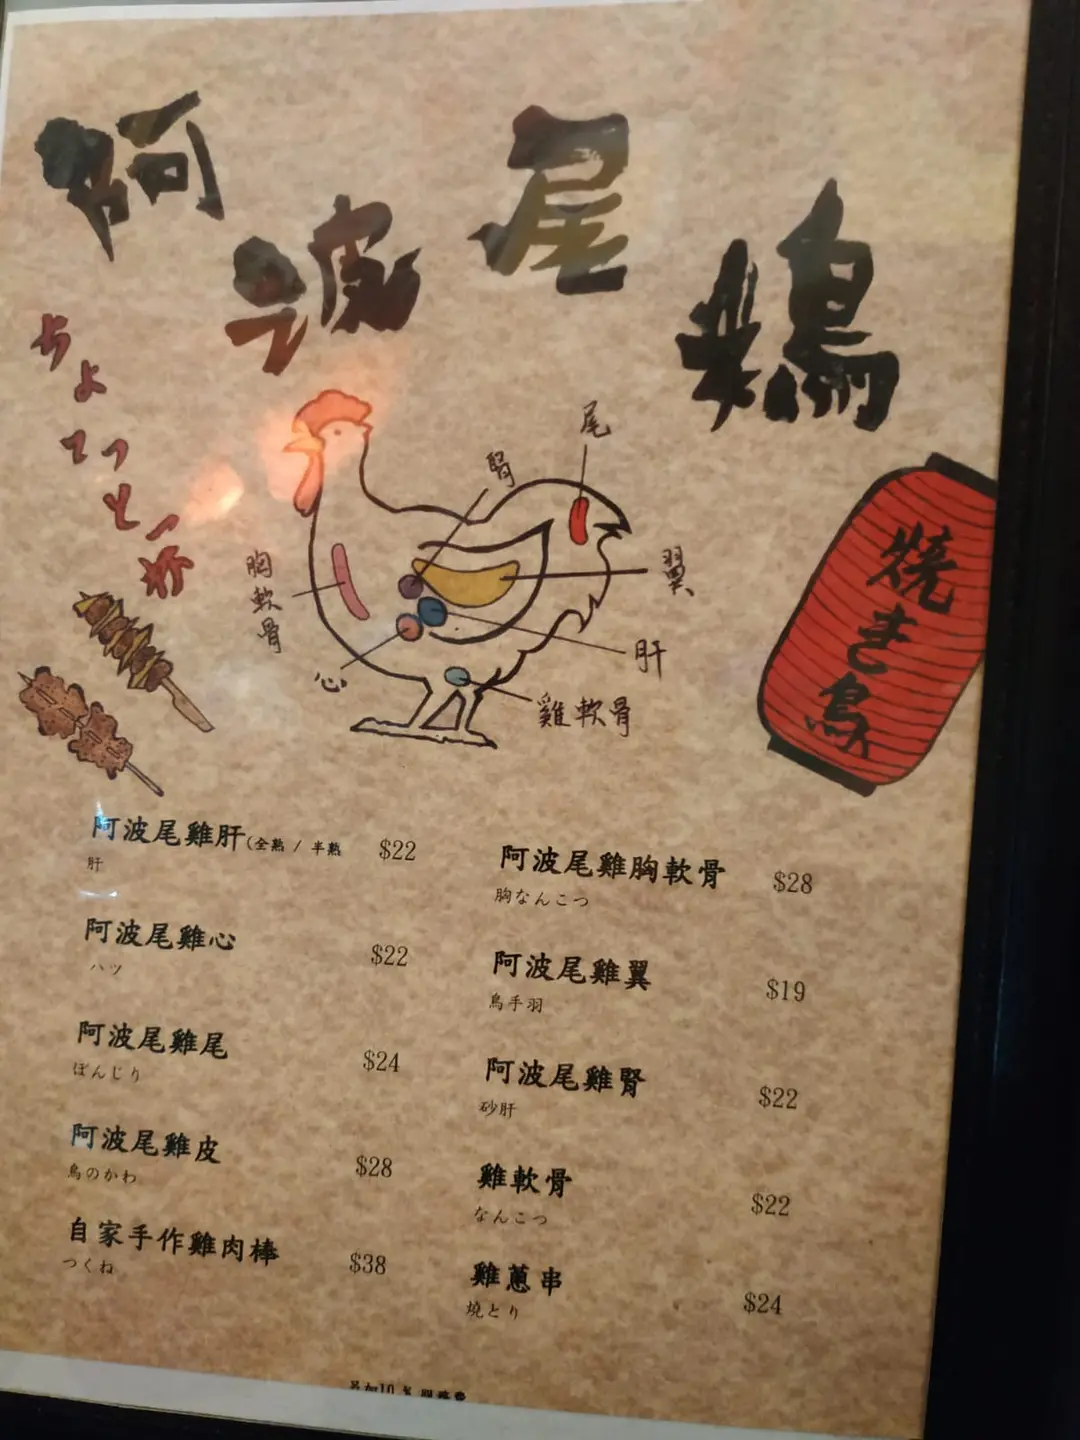 阿波尾鷄
ちょてっと一杯
尾
腎
胸軟骨
翼
肝
心
雞軟骨
焼き鳥
阿波尾雞肝(全熟 / 半熟
$22
肝
阿波尾雞心
$22
ハツ
阿波尾雞尾
$24
ぼんじり
阿波尾雞皮
$28
鳥のかわ
自家手作雞肉棒
$38
つくね
阿波尾雞胸軟骨
$28
胸なんこつ
阿波尾雞翼
$19
鳥手羽
阿波尾雞腎
$22
砂肝
雞軟骨
$22
なんこつ
雞蔥串
$24
燒とり
另加10％服務費